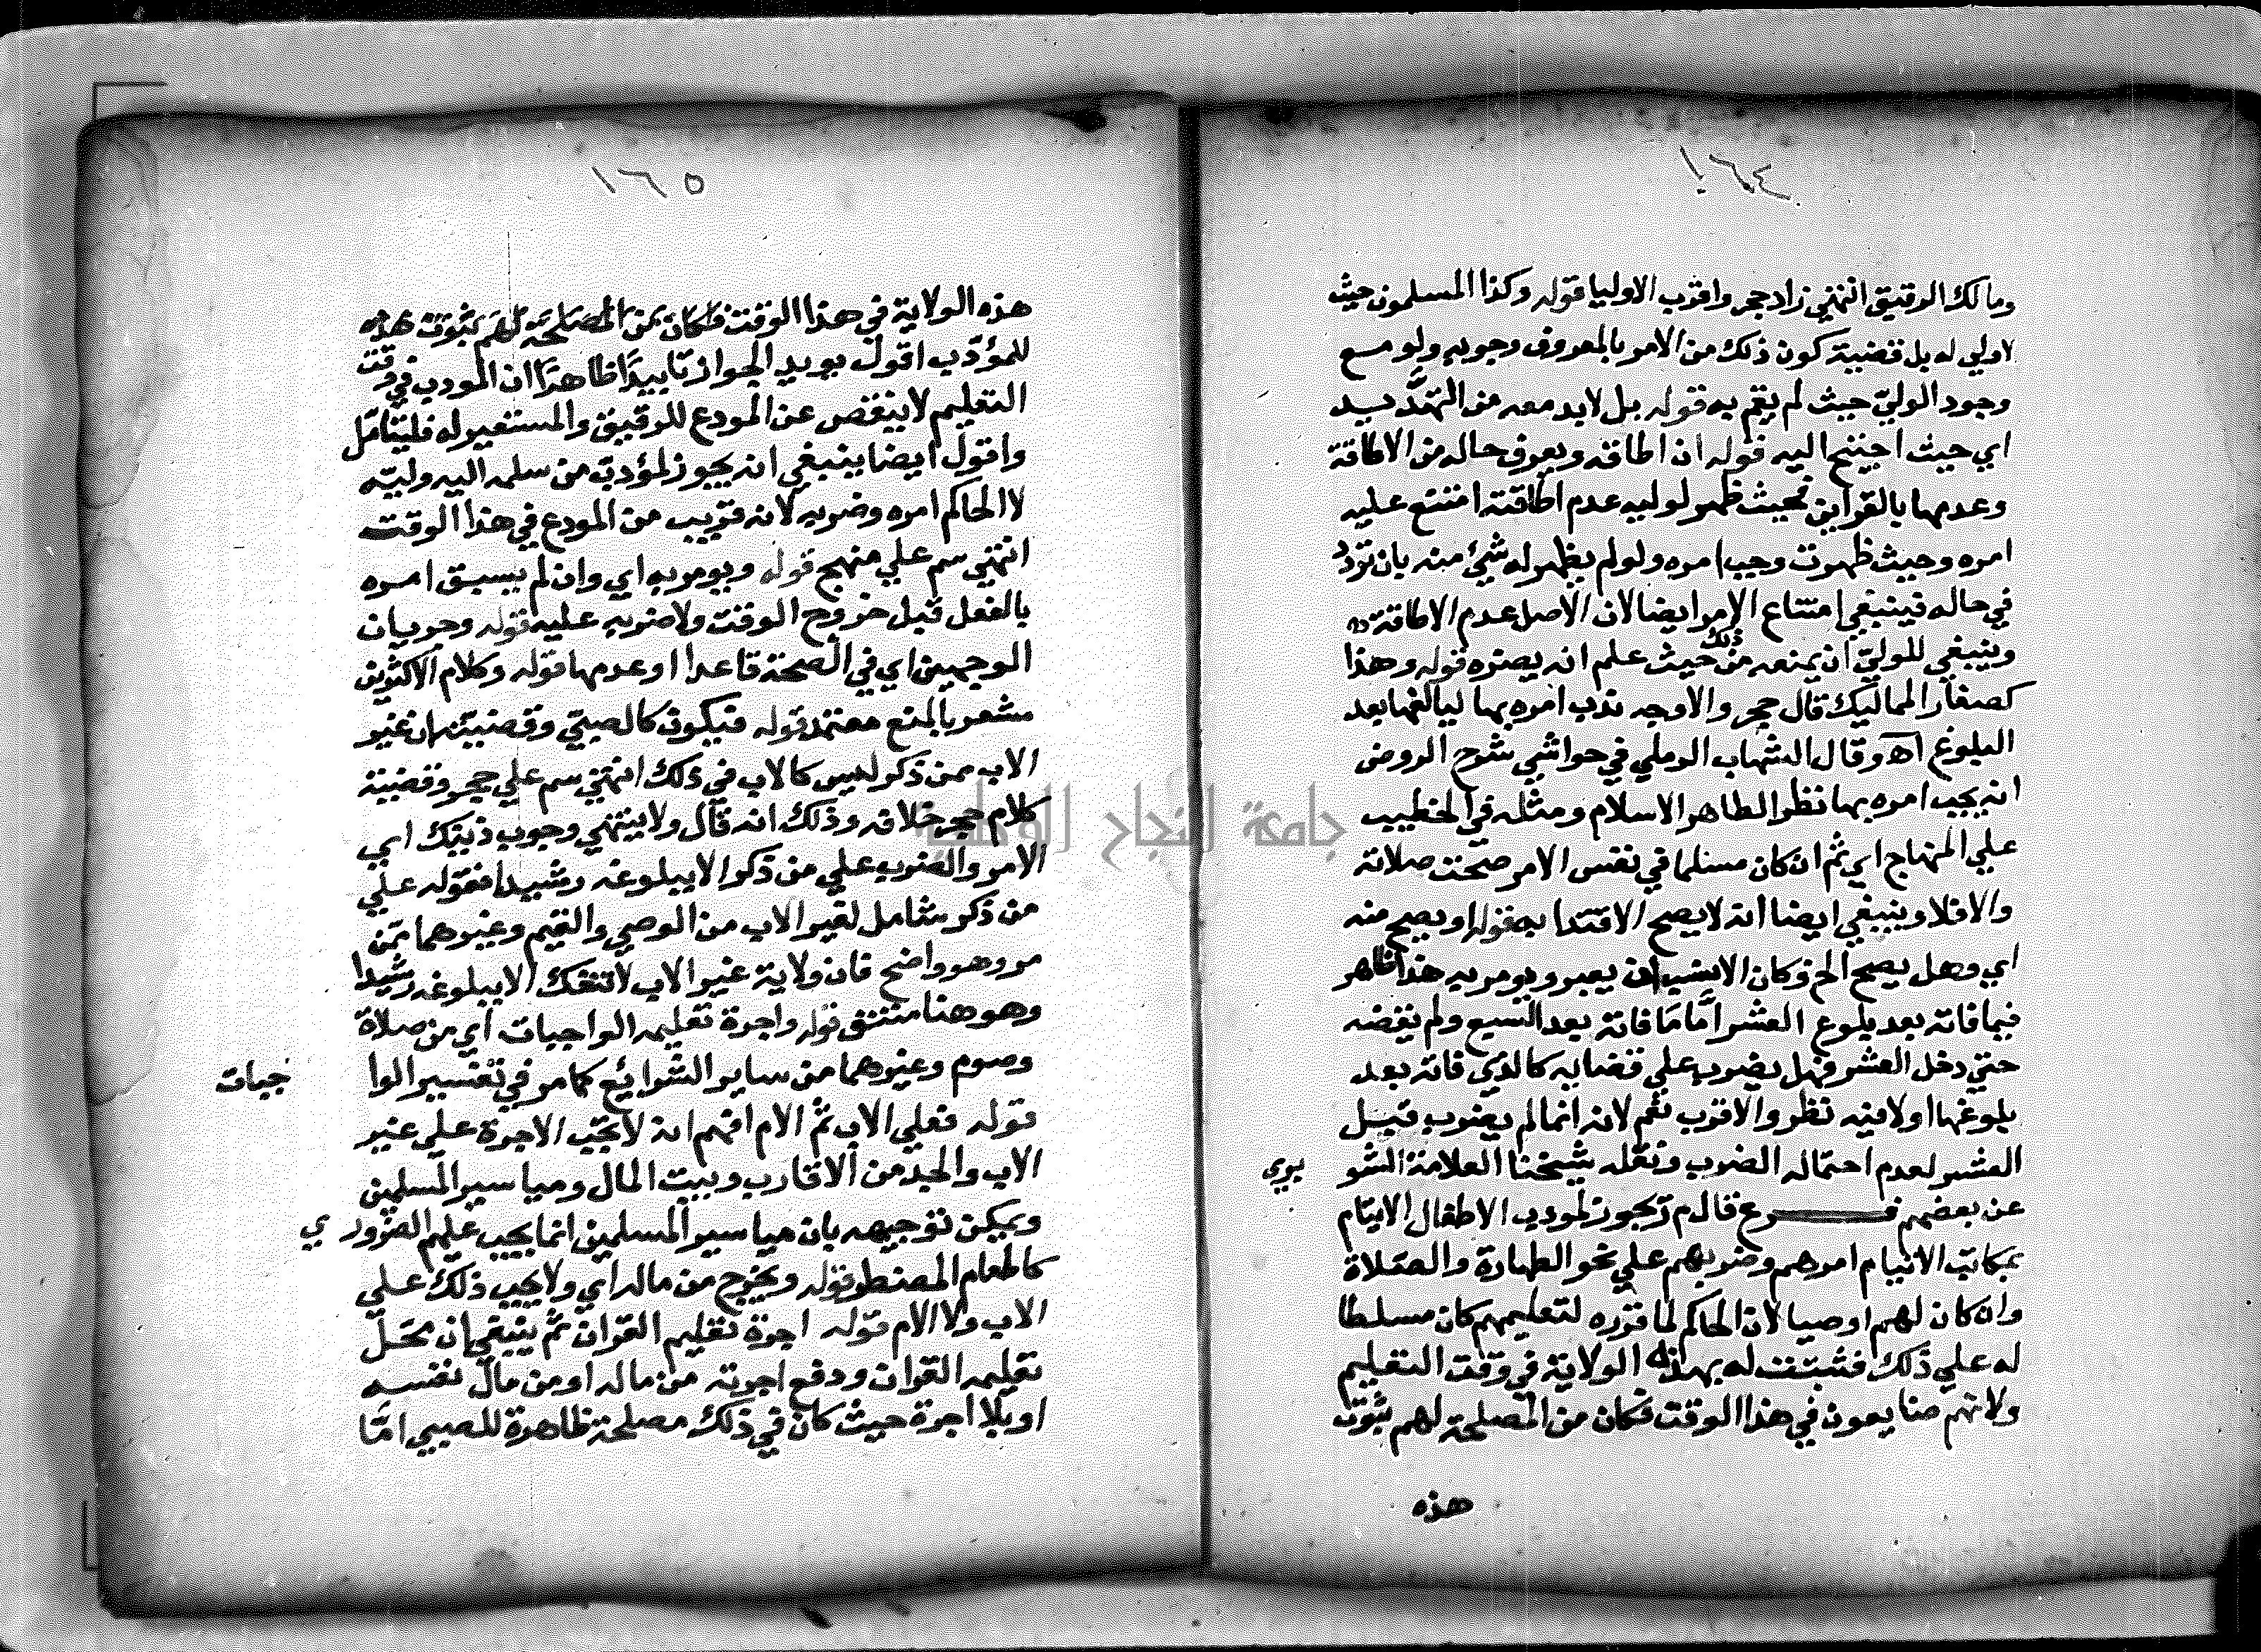 ١٦٤
ومالك الرقيق انتهي زاد حجر واقرب الاوليا قوله وكذا المسلمون حيث
لا ولي له بل قضية كون ذلك من الامر بالمعروف وجوبه ولو مع
وجود الولي حيث لم يقم به قوله بل لابد معه من التهديد
اي حيث احتيج اليه قوله ان اطاقه ويعرف حاله من الاطاقة
وعدمها بالقراين فحيث ظهر لوليه عدم اطاقته امتنع عليه
امره وحيث ظهرت وجب امره ولو لم يظهر له شئ منه بان تردد
في حاله فينبغي امتناع الامر ايضا لان الاصل عدم الاطاقة
وينبغي للولي ان يمنعه من ذلك حيث علم انه يضره قوله وهذا
كصغار المماليك قال حجر والاوجه ندب امره بها ليالفها بعد
البلوغ اه وقال الشهاب الرملي في حواشي شرح الروض
انه يجب امره بها نظر الظاهر الاسلام ومثله في الخطيب
علي المنهاج اي ثم ان كان مسلما في نفس الامر صحت صلاته
والا فلا وينبغي ايضا انه لا يصح الاقتدا به قوله او يصح منه
اي وهل يصح الخ وكان الانسب ان يعبر ويومر به هذا ظاهر
فيما فاته بعد بلوغ العشر اما ما فاته بعد السبع ولم يقضه
حتي دخل العشر فهل يضرب علي قضايه كالذي فاته بعد
بلوغها اولا فيه نظر والاقرب نعم لانه انما لم يضرب قبل
العشر لعدم احتماله الضرب ونقله شيخنا العلامة الشو
بري
عن بعضهم فرع قال م ر يجوز لمودب الاطفال الايتام
بمكاتب الايتام امرهم وضربهم علي نحو الطهارة والصلاة
وان كان لهم اوصيا لان الحاكم لما قرره لتعليمهم كان مسلطا
له علي ذلك فثبتت له بهذه الولاية في وقت التعليم
ولانهم ضايعون في هذا الوقت فكان من المصلحة لهم ثبوت
هذه
١٦٥
هذه الولاية في هذا الوقت فكان من المصلحة لهم ثبوت هذه
للمؤدب اقول يويد الجواز تاييدا ظاهرا ان المودب في وقت
التعليم لا ينقص عن المودع للرقيق والمستعير له فليتامل
واقول ايضا ينبغي انه يجوز لمؤدب من سلمه اليه وليه
لا الحاكم امره وضربه لانه قريب من المودع في هذا الوقت
انتهي سم علي منهج قوله ويومر به اي وان لم يسبق امره
بالفعل قبل خروج الوقت ولا ضربه عليه قوله وجريان
الوجهين اي في الصحة قاعدا او عدمها قوله وكلام الاكثرين
مشعر بالمنع معتمد قوله فيكون كالصبي وقضيته ان غير
الاب ممن ذكر ليس كالاب في ذلك انتهي سم علي حجر وقضية
كلام حجر خلافه وذلك انه قال ولا ينتهي وجوب ذينك اي
الامر والضرب علي من ذكر الا ببلوغه رشيدا فقوله علي
من ذكر شامل لغير الاب من الوصي والقيم وغيرهما ممن
مر وهو واضح فان ولاية غير الاب لا تنفك الا ببلوغه رشيدا
وهو هنا منتف قوله واجرة تعليمه الواجبات اي من صلاة
وصوم وغيرهما من ساير الشرايع كما مر في تفسير الوا
جبات
قوله فعلي الاب ثم الام افهم انه لا تجب الاجرة علي غير
الاب والجد من الاقارب وبيت المال ومياسير المسلمين
ويمكن توجيهه بان مياسير المسلمين انما يجب عليهم الضروري
كاطعام المضطر قوله ويخرج من ماله اي ولا يجب ذلك علي
الاب ولا الام قوله اجرة تعليم القران ثم ينبغي ان محل
تعليمه القران ودفع اجرته من ماله او من مال نفسه
او بلا اجرة حيث كان في ذلك مصلحة ظاهرة للصبي اما
جامعة النجاح الوطنية